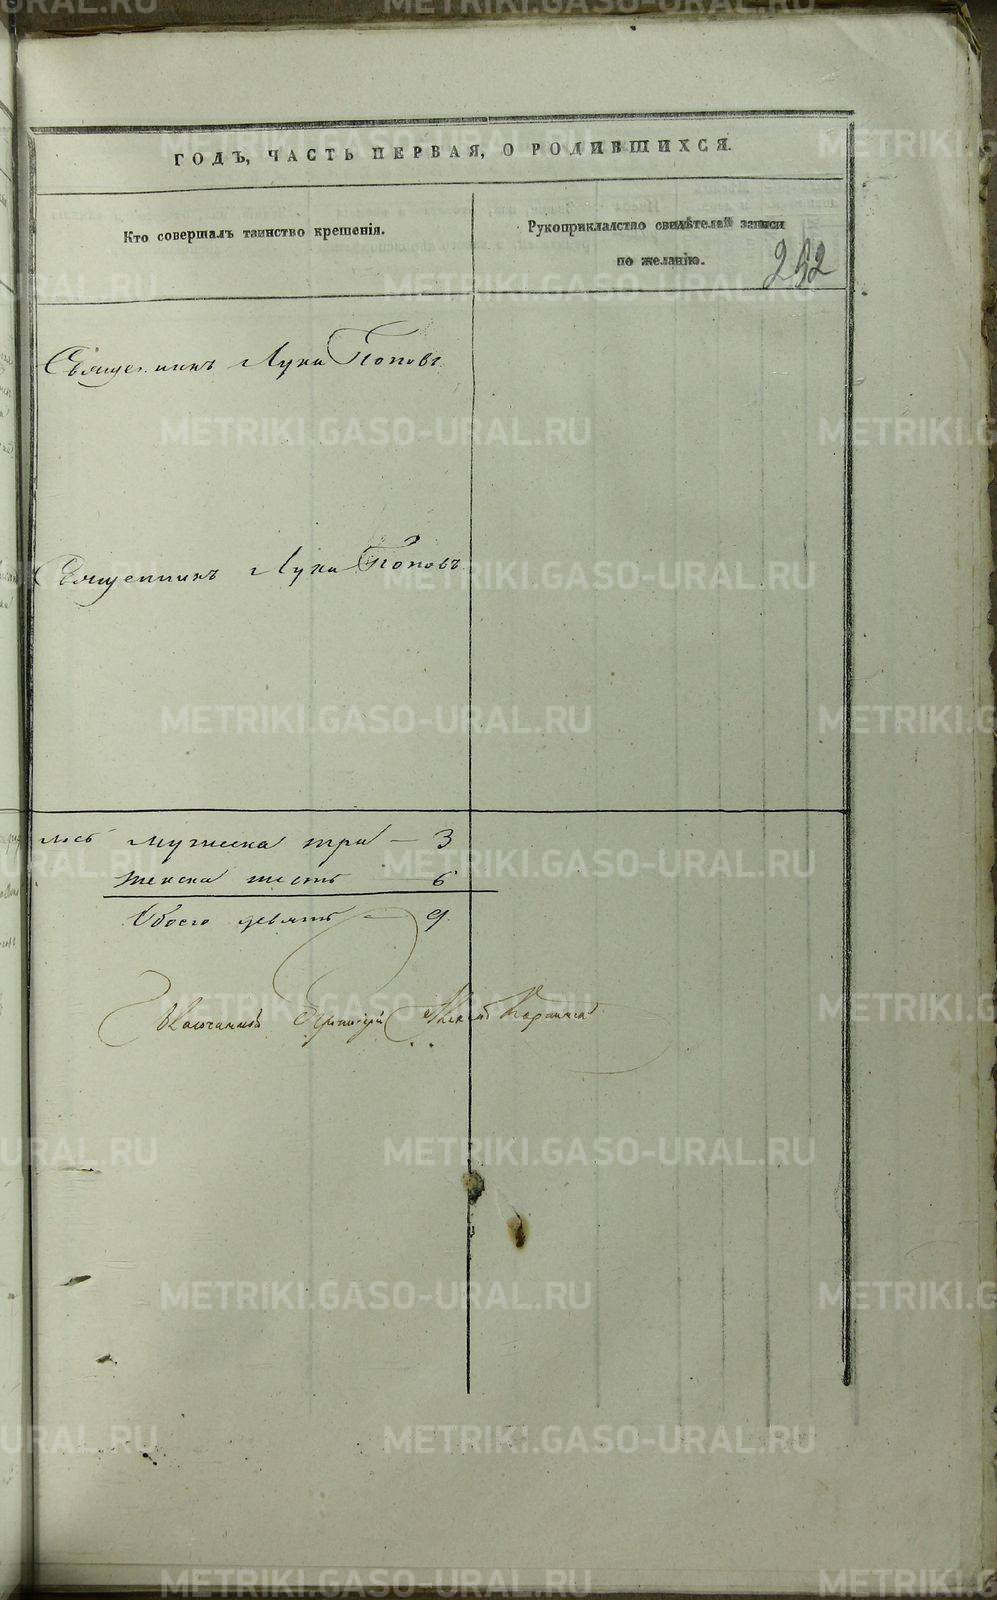 ГОДЪ, ЧАСТЬ ПЕРВАЯ, О РОДИВШИХСЯ.
Кто совершалъ таинство крещенія.
Рукоприкладство свидѣтелей записи
по желанію.
252
Священникъ Лука Поповъ
Священникъ Лука Поповъ
лось мужеска три — 3
женска шесть 6
Обоего девять — 9
METRIKI.GASO-URAL.RU